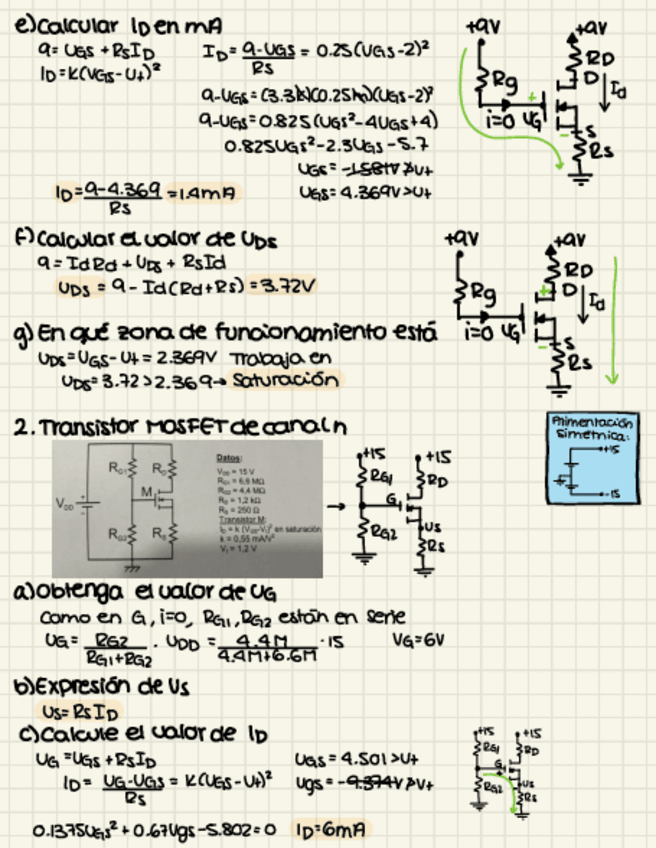 e) Calcular ID en mA
9 = UGS + RSID
ID = K(VGS-Ut)²
ID = 9-UGS / RS = 0.25(UGS-2)²
9-UGS = (3.3k)(0.25m)(UGS-2)²
9-UGS = 0.825(UGS²-4UGS+4)
0.825UGS²-2.3UGS-5.7
UGS = -1.581V ≯ Ut
UGS = 4.369V > Ut
ID = 9-4.369 / RS = 1.4mA
+9V
+9V
Rg
RD
D
Id
+
i=0 UG
-
S
Rs
f) Calcular el valor de UDS
9 = IdRd + UDS + RSId
UDS = 9 - Id(Rd+Rs) = 3.72V
+9V
+9V
Rg
RD
D
Id
+
i=0 UG
-
S
Rs
g) En qué zona de funcionamiento está
UDS = UGS-Ut = 2.369V Trabaja en
UDS = 3.72 > 2.369 → Saturación
2. Transistor MOSFET de canal n
Alimentación
Simétrica:
+15
-15
RG1
RD
M
VDD
RG2
RS
Datos:
VDD = 15 V
RG1 = 6,6 MΩ
RG2 = 4,4 MΩ
RD = 1,2 kΩ
RS = 250 Ω
Transistor M:
ID = k (VGS-Vt)² en saturación
k = 0,55 mA/V²
Vt = 1,2 V
+15
+15
RG1
RD
G
RG2
Us
Rs
a) Obtenga el valor de UG
Como en G, i=0, RG1, RG2 están en serie
UG = RG2 / RG1+RG2 · UDD = 4.4M / 4.4M+6.6M · 15 VG=6V
b) Expresión de Us
Us = RSID
c) Calcule el valor de ID
UG = UGS + RSID
ID = UG-UGS / RS = K(UGS-Ut)²
UGS = 4.501 > Ut
Ugs = -9.374V ≯ Ut
0.1375UGS² + 0.67Ugs - 5.802 = 0 ID = 6mA
+15
+15
RG1
RD
G
RG2
Us
Rs